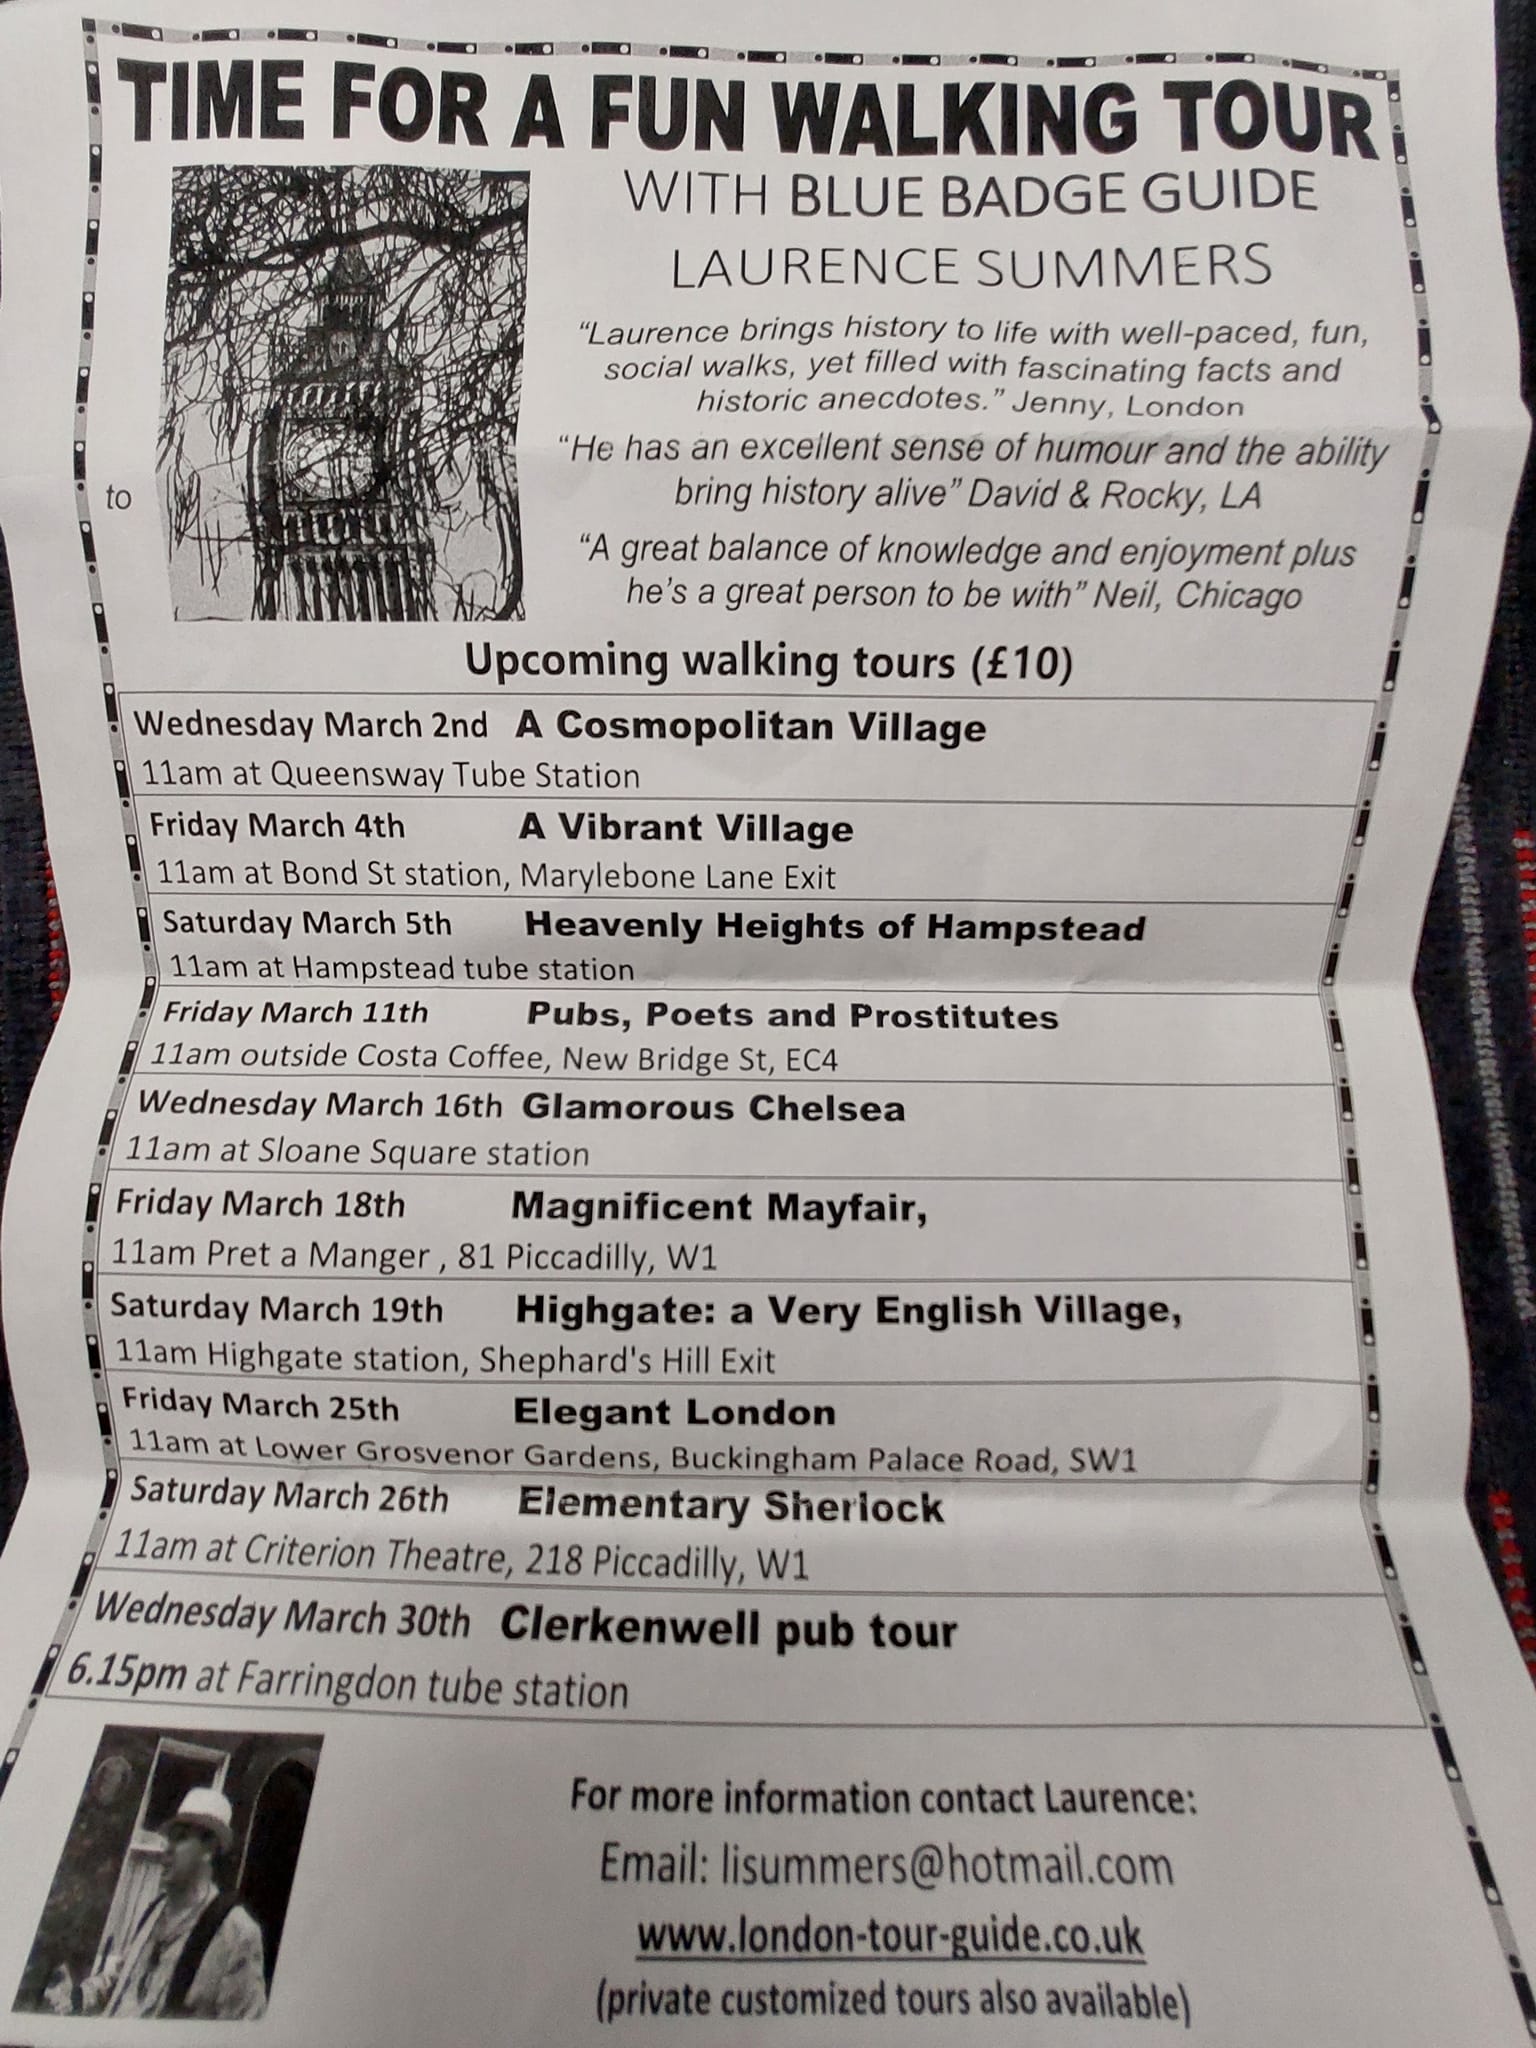 TIME FOR A FUN WALKING TOUR
WITH BLUE BADGE GUIDE
LAURENCE SUMMERS
“Laurence brings history to life with well-paced, fun,
social walks, yet filled with fascinating facts and
historic anecdotes.” Jenny, London
“He has an excellent sense of humour and the ability
to
bring history alive” David & Rocky, LA
“A great balance of knowledge and enjoyment plus
he’s a great person to be with” Neil, Chicago
Upcoming walking tours (£10)
Wednesday March 2nd A Cosmopolitan Village
11am at Queensway Tube Station
Friday March 4th A Vibrant Village
11am at Bond St station, Marylebone Lane Exit
Saturday March 5th Heavenly Heights of Hampstead
11am at Hampstead tube station
Friday March 11th Pubs, Poets and Prostitutes
11am outside Costa Coffee, New Bridge St, EC4
Wednesday March 16th Glamorous Chelsea
11am at Sloane Square station
Friday March 18th Magnificent Mayfair,
11am Pret a Manger , 81 Piccadilly, W1
Saturday March 19th Highgate: a Very English Village,
11am Highgate station, Shephard's Hill Exit
Friday March 25th Elegant London
11am at Lower Grosvenor Gardens, Buckingham Palace Road, SW1
Saturday March 26th Elementary Sherlock
11am at Criterion Theatre, 218 Piccadilly, W1
Wednesday March 30th Clerkenwell pub tour
6.15pm at Farringdon tube station
For more information contact Laurence:
Email: lisummers@hotmail.com
www.london-tour-guide.co.uk
(private customized tours also available)